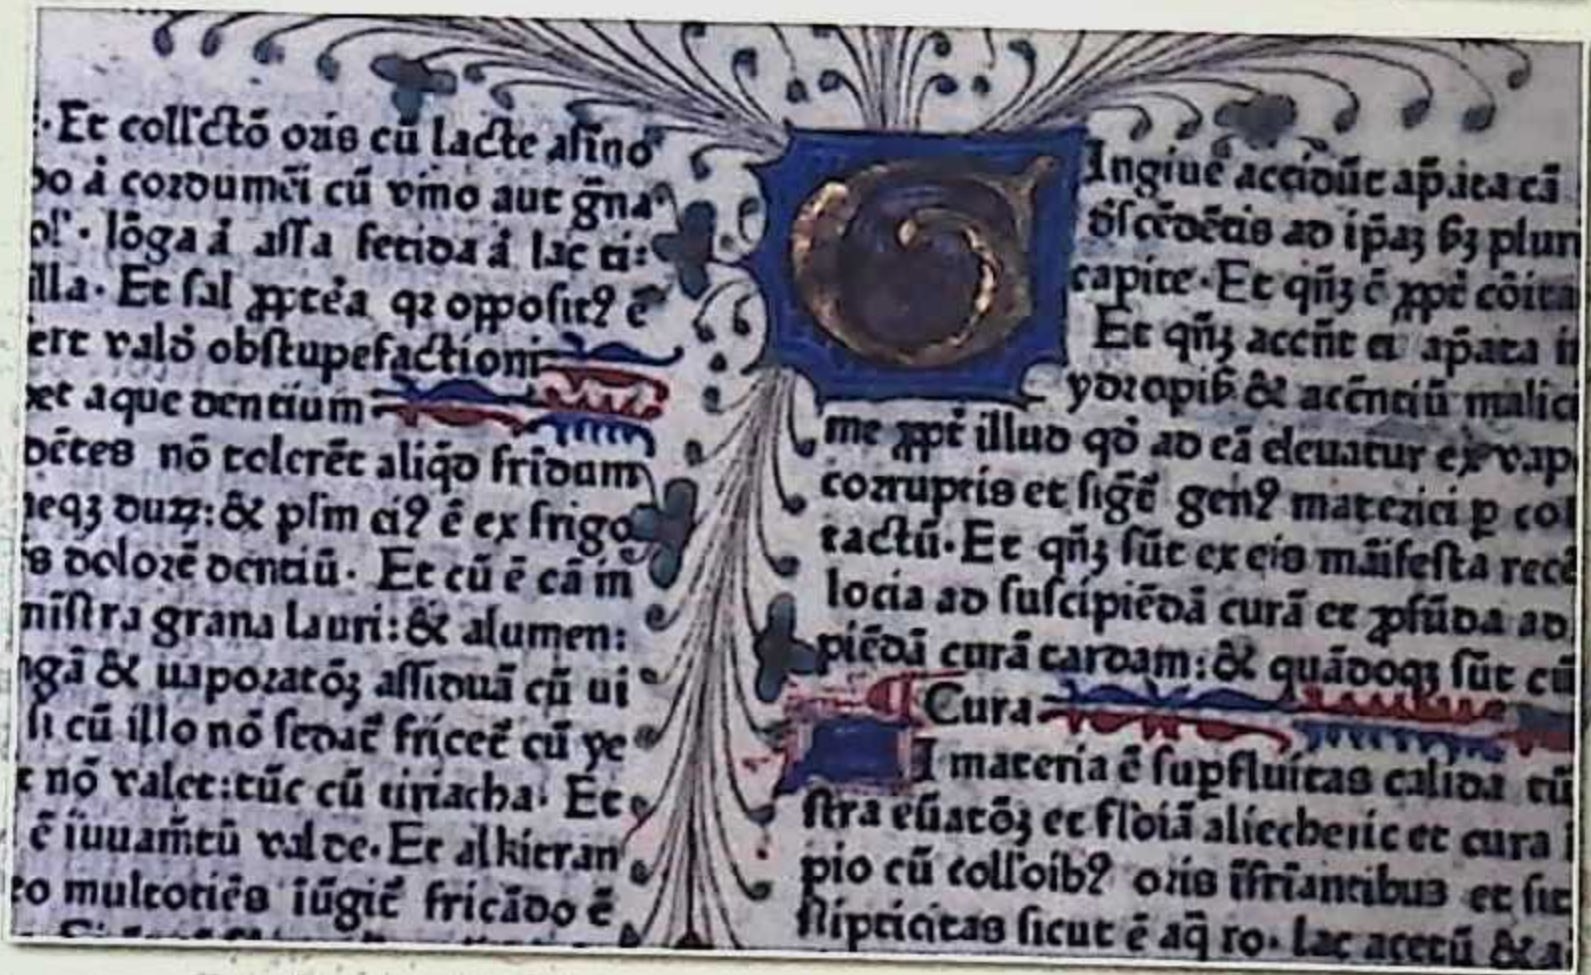 · Et coll'ctō oris cū lacte asino
bo aͥ cordumēi cū vino aut gn̄a
ol'· lōga aͥ assa fetida aͥ lac ti:
lla· Et sal ꝓpteͣa qꝛ opposit⁹ ē
ert valō obstupefactioni
et aque dentium
dētes nō tolerēt aliq̄d fridum
neqꝫ duꝝ: & plm ei⁹ ē ex frigo
s dolorē dentiū· Et cū ē cā in
nistra grana lauri: & alumen:
gā & uaporatōꝫ assiduā cū ui
si cū illo nō sedat̄ fricet̄ cū ye
t nō valet: tūc cū tiriacha· Et
ē iuuam̄tū valde· Et alkitran
o multotiēs iūgit̄ fricādo ē
GIngiue accidūt ap̄ata cā
d̄scēdētis ad ip̄aꝫ sꝫ plur
capite· Et qn̄ꝫ ē ꝓpt̄ cōita
Et qn̄ꝫ accn̄t ei ap̄ata i
ydropib⁹ & accn̄tiū malic
me ꝓpt̄ illud qd̄ ad eā eleuatur ex vap
corruptis et sigē gen⁹ materiei ꝑ co
tactū· Et qn̄ꝫ sūt ex eis māifesta recē
locia ad suscipiēdā curā et ꝓfūda ad
piēdā curā tardam: & quādoqꝫ sūt cū
¶ Cura
I materia ē supfluitas calida tū
stra eūatōꝫ et fl'oiā aliecberic et cura i
pio cū coll'oib⁹ oris īfrīantibus et sic
stipticitas sicut ē aq̄ ro· lac acetū & a